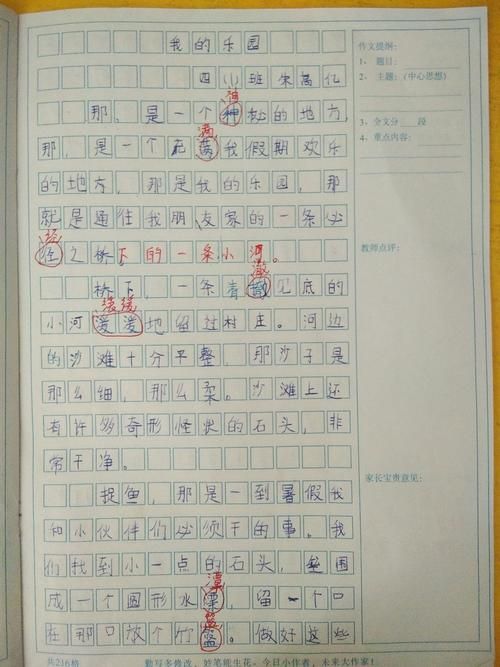 我的乐园
四(1)班 朱高亿
那,是一个神秘的地方,
那,是一个充满我假期欢乐
满
的地方,那是我的乐园,那
就是通往我朋友家的一条必
经
径之桥下的一条小河。
澈
桥下,一条青澈见底的
缓缓
小河爰爰地经过村庄。河边
的沙滩十分平整,那沙子是
那么细,那么柔。沙滩上还
有许多奇形怪状的石头,非
常干净。
捉鱼,那是一到暑假我
和小伙伴们必须干的事。我
们找到小一点的石头,垒围
成一个圆形水潭,留一个口
在那口放个竹篮。做好这些
共216格
勤写多修改,妙笔能生花。今日小作者,未来大作家!
作文提纲:
1、题目:
2、主题:(中心思想)
3、全文分 段
4、重点内容:
教师点评:
家长宝贵意见: